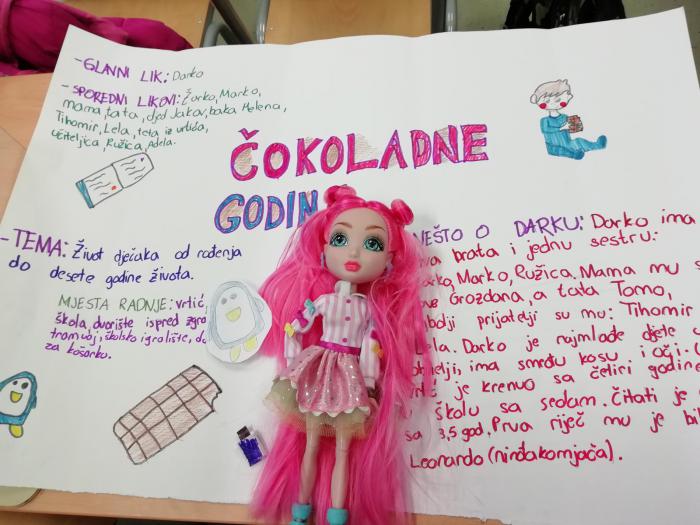 -GLAVNI LIK: Darko
-SPOREDNI LIKOVI: Žarko, Marko,
mama, tata, djed Jakov, baka Helena,
Tihomir, Lela, teta iz vrtića,
učiteljica Ružica, Adela.
ČOKOLADNE
GODIN
-TEMA: Život dječaka od rođenja
do desete godine života.
MJESTA RADNJE: vrtić,
škola, dvorište ispred zgra
tramvaj, školsko igralište, do
za košarku.
NEŠTO O DARKU: Darko ima
va brata i jednu sestru:
Marko, Ružica, Mama mu s
Grozdana, a tata Tomo,
bolji prijatelji su mu: Tihomir
Lela. Darko je najmlađe dijete
ima smeđu kosu i oči.
je krenuo sa četiri godine
školu sa sedam. Čitati je
sa 3,5 god. Prva riječ mu je bi
Leonardo (ninđakornjača).